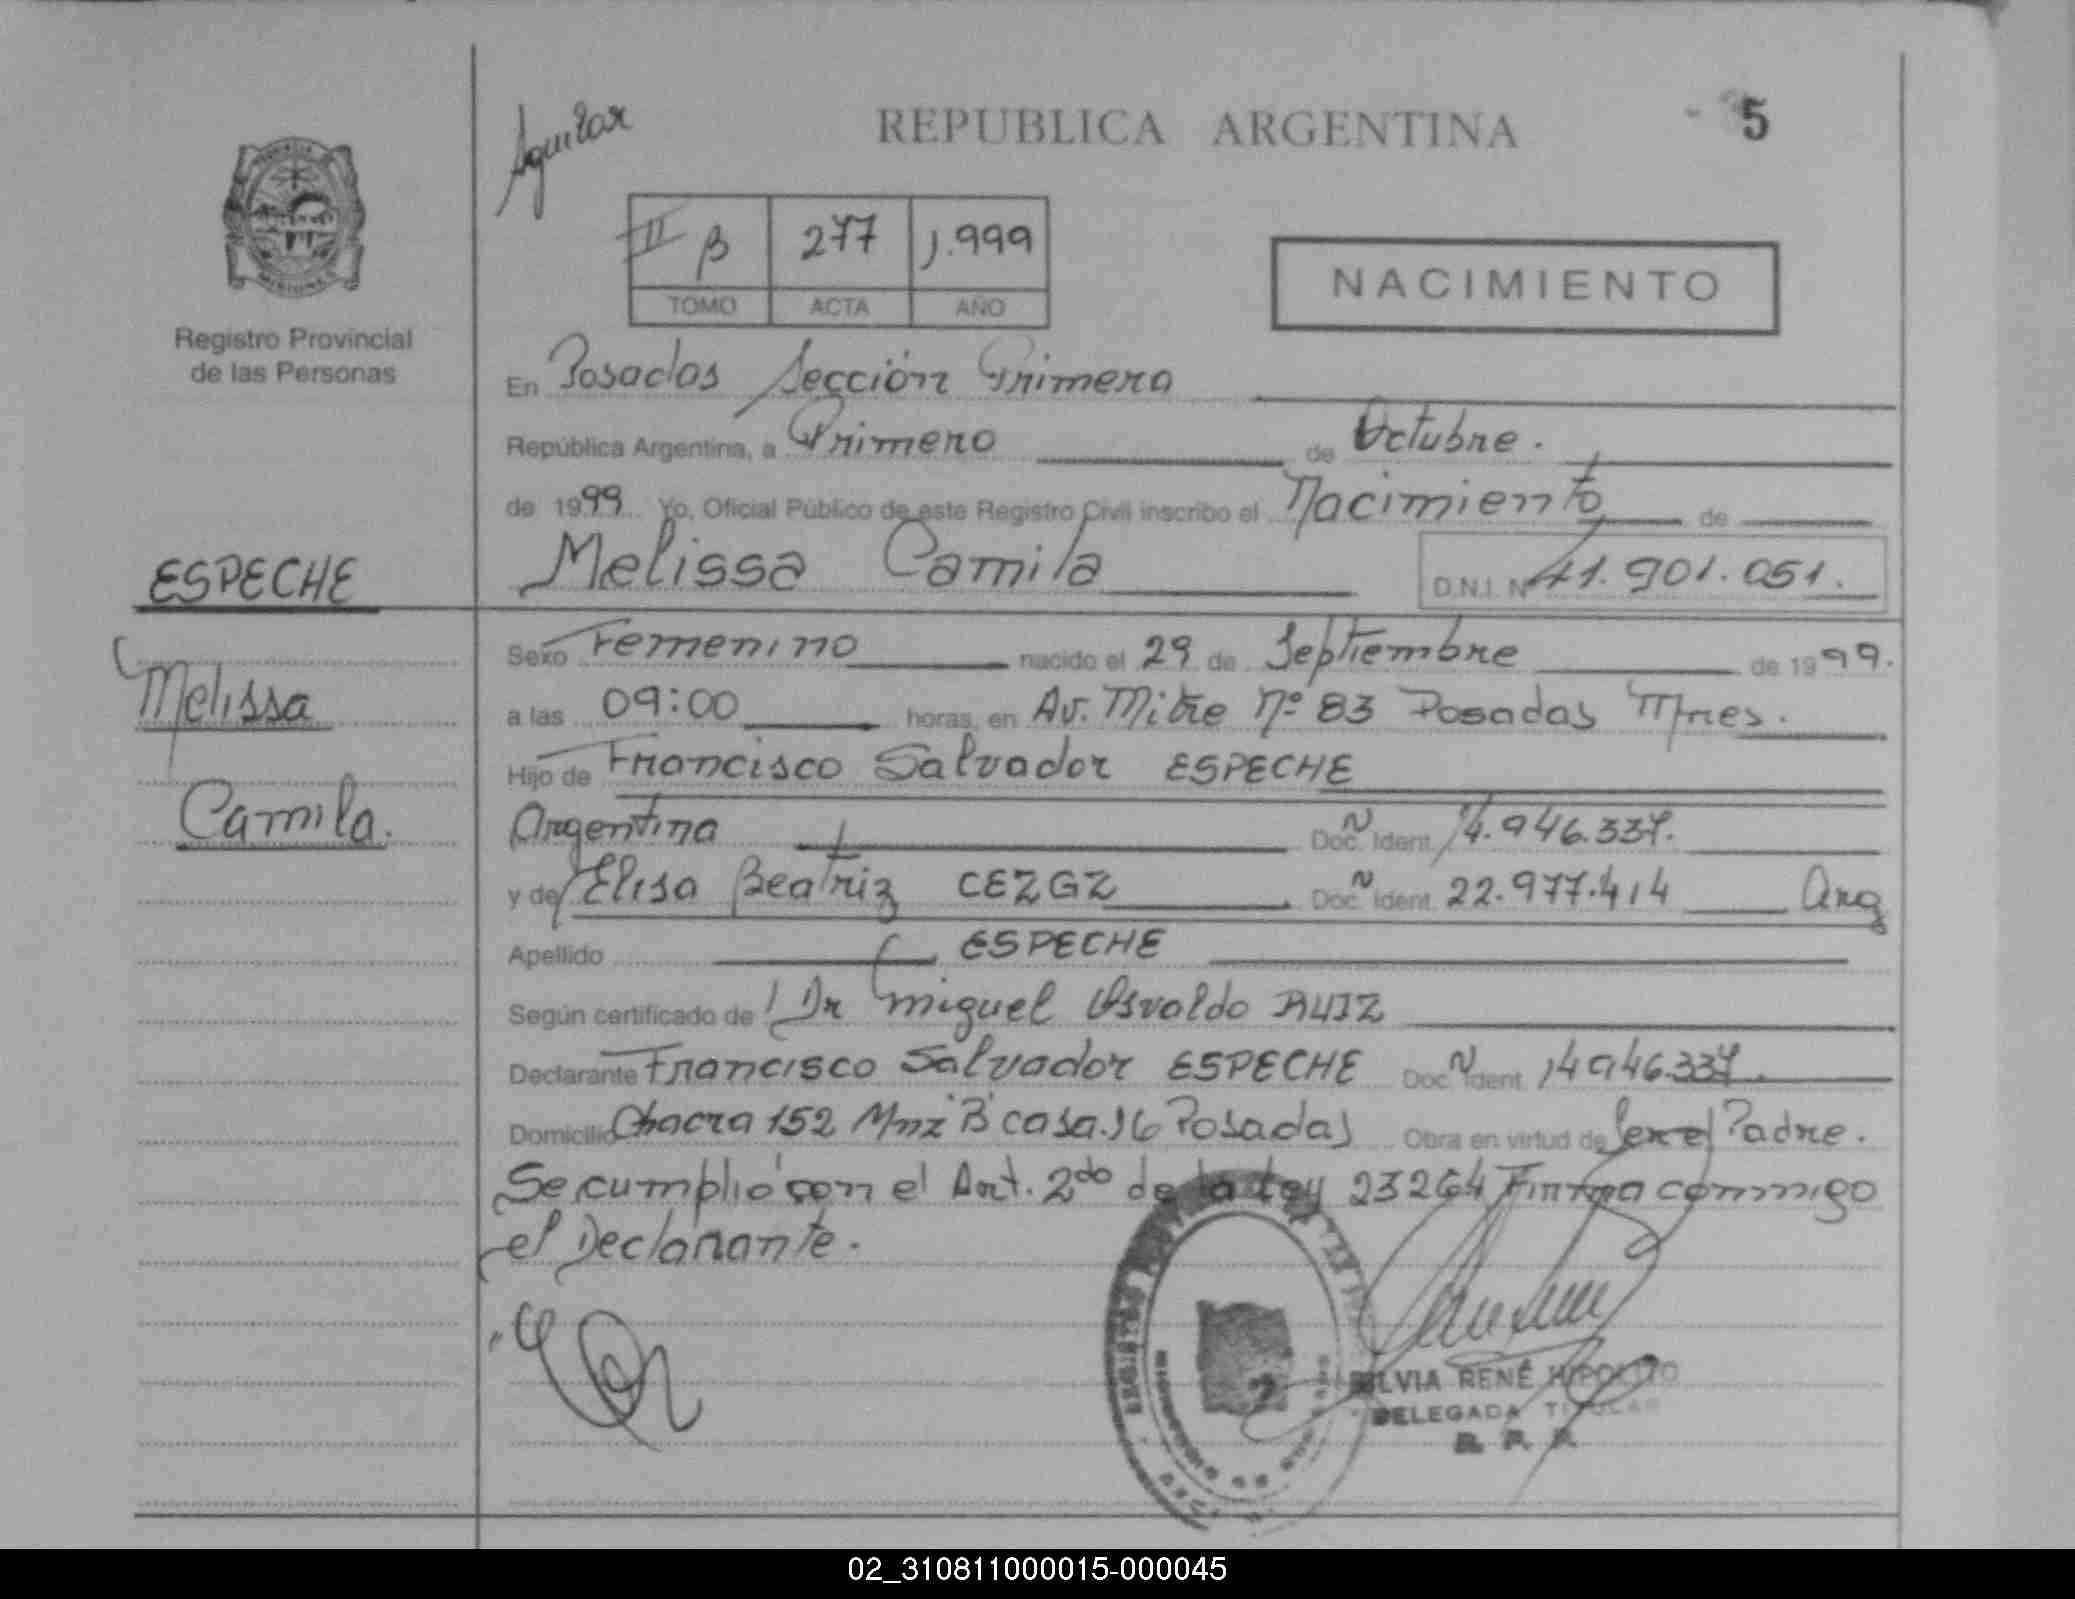 Aguilar
REPUBLICA ARGENTINA
5
II B 277 1.999
TOMO ACTA AÑO
NACIMIENTO
Registro Provincial
de las Personas
En Posadas Sección Primera
República Argentina, a Primero de Octubre.
de 1999 Yo, Oficial Público de este Registro Civil inscribo el Nacimiento de
Melissa Camila D.N.I. Nº 41.901.051.
ESPECHE
Melissa
Camila.
Sexo Femenino nacido el 29 de Septiembre de 1999.
a las 09:00 horas, en Av. Mitre Nº 83 Posadas Mnes.
Hijo de Francisco Salvador ESPECHE
Argentina Doc. Ident. 14.946.337.
y de Elisa Beatriz Doc. Ident. 22.977.414 Arg
Apellido ESPECHE
Según certificado de Dr Miguel Osvaldo RUIZ
Declarante Francisco Salvador ESPECHE Doc. Ident. 14946.337.
Domicilio Chacra 152 Mnz "B" casa.16 Posadas Obra en virtud de Ser el Padre.
Se cumplió con el Art. 2do de la Ley 23264 Firma conmigo
el Declarante.
SILVIA RENÉ HIPOLITO
DELEGADA TITULAR
R. P. P.
02_310811000015-000045